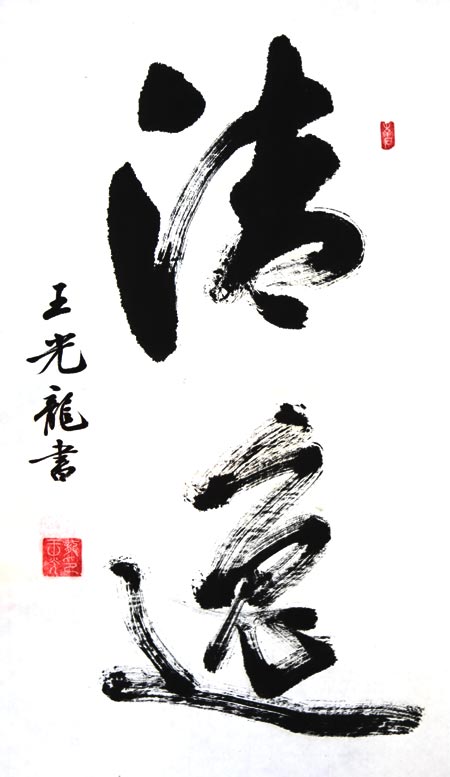 清逸
王光龍書